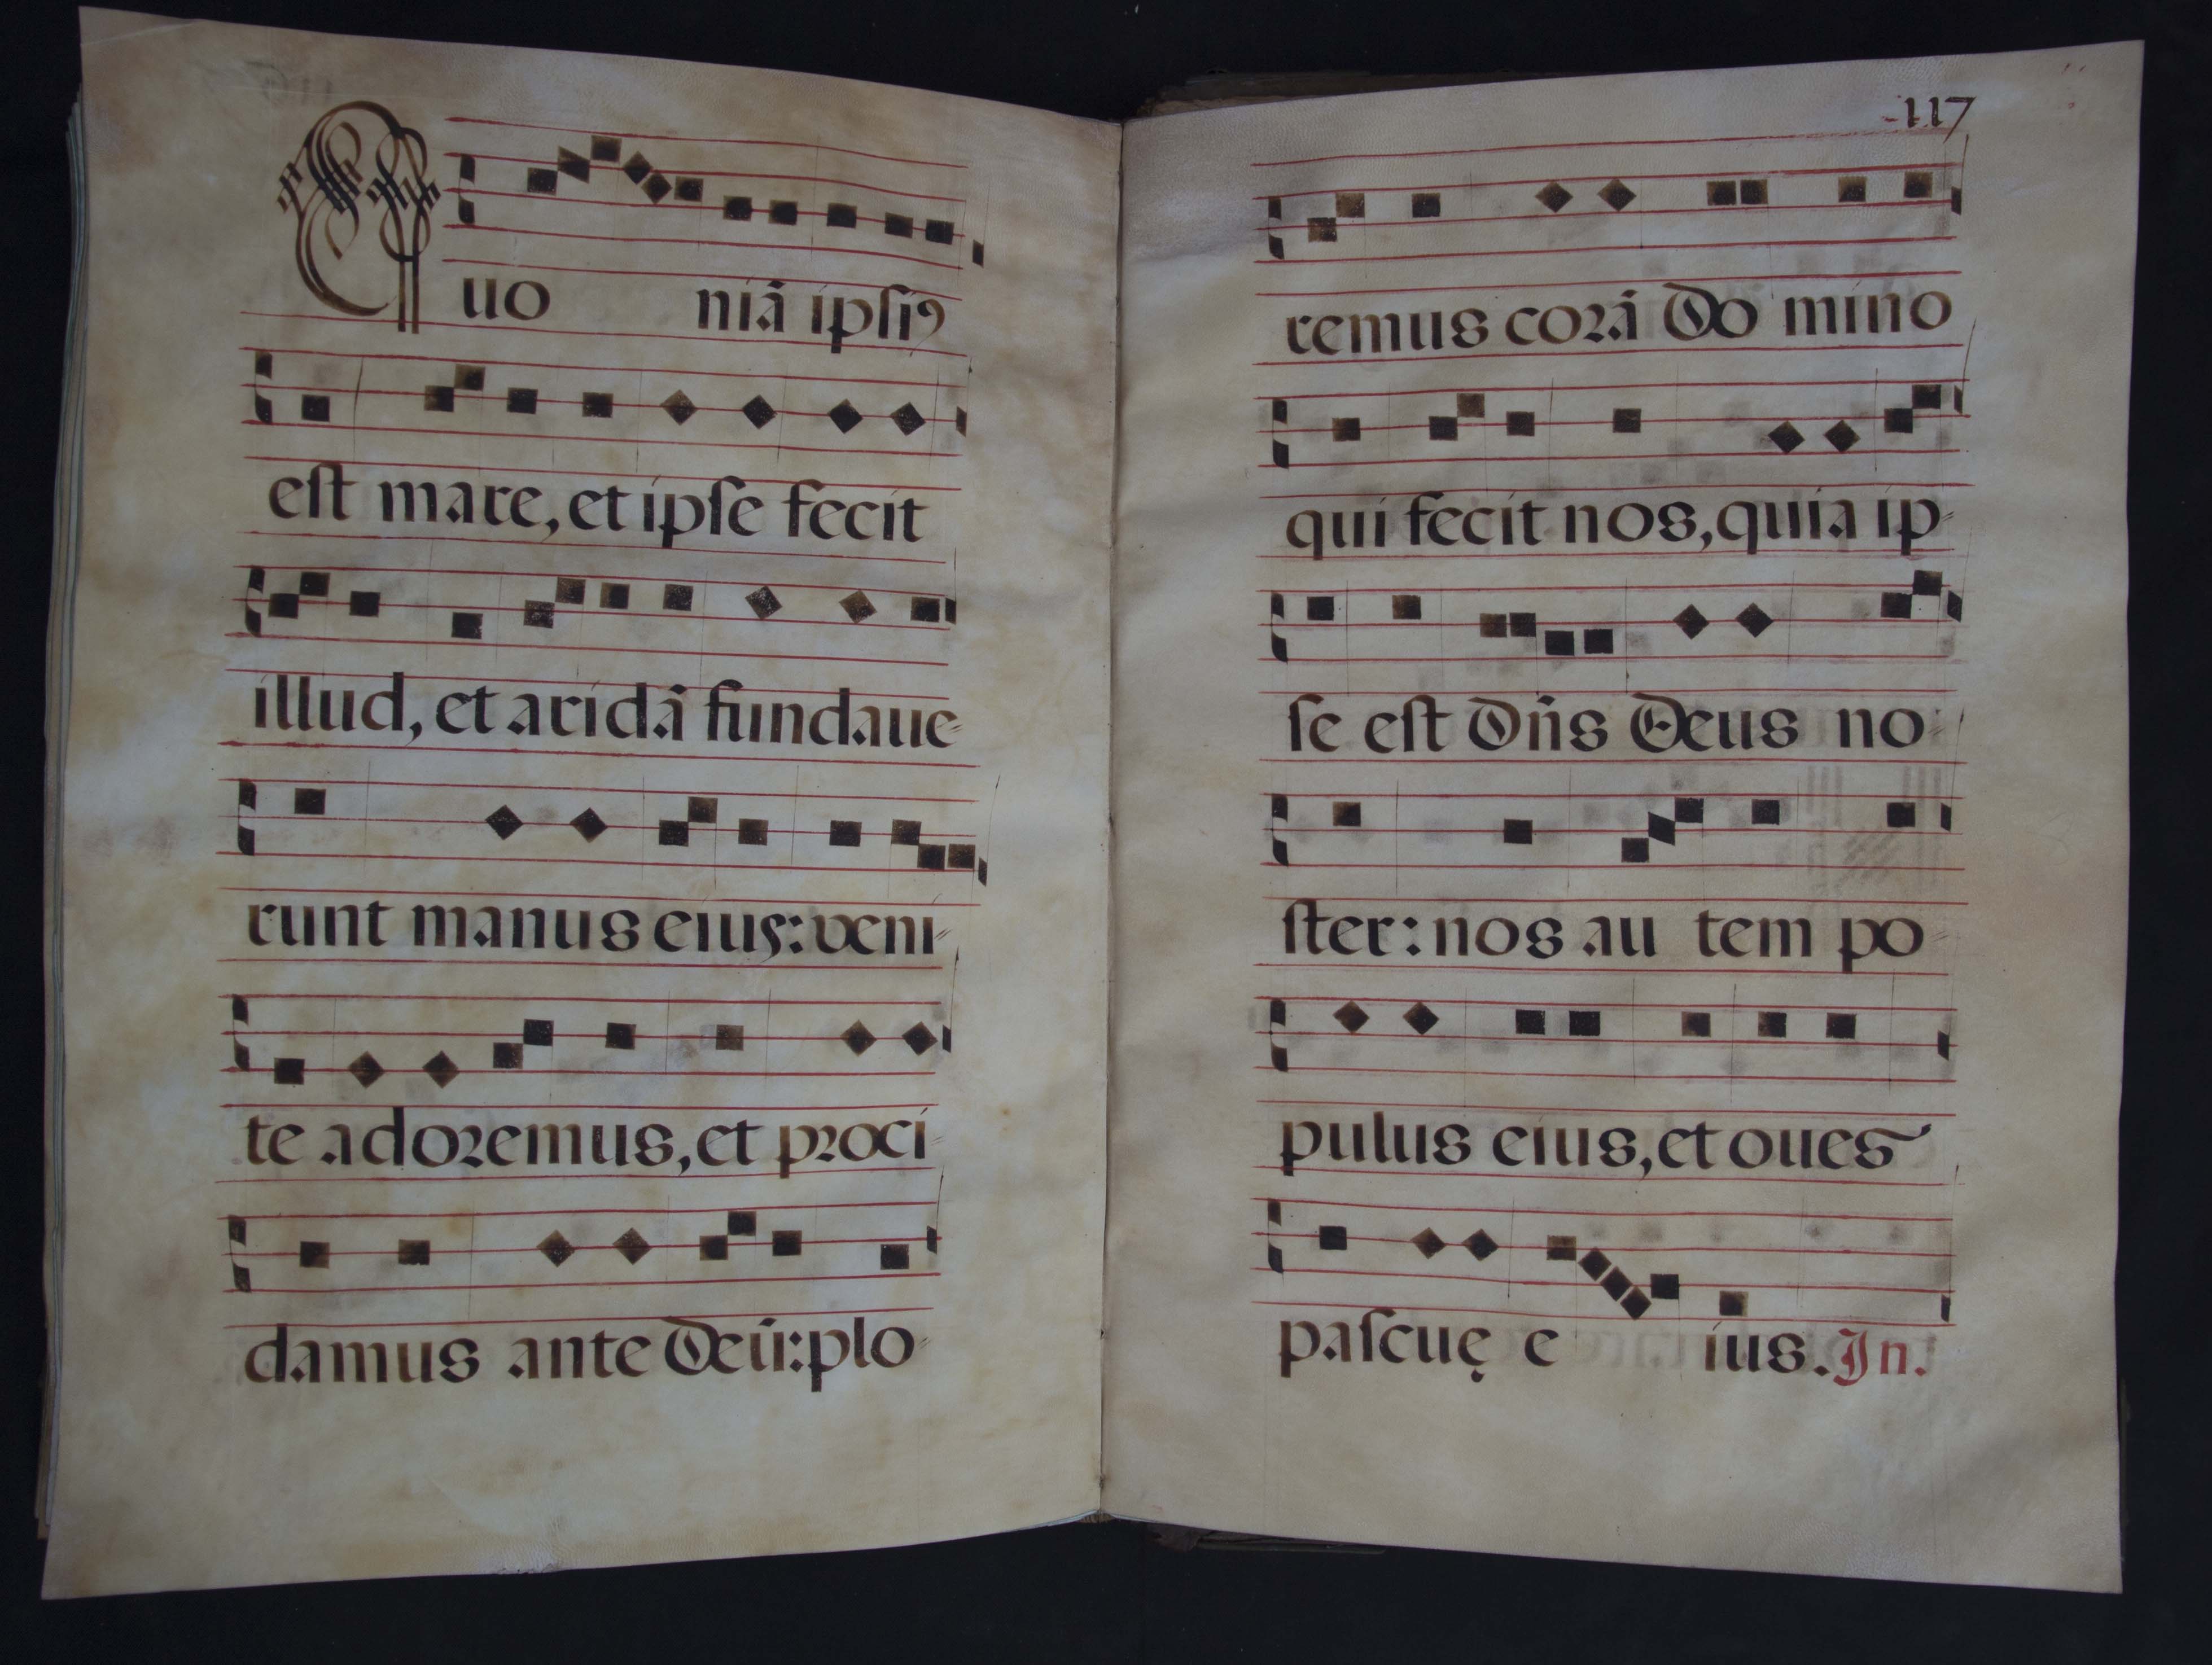 Quo niã ipsiꝯ
est mare, et ipse fecit
illud, et aridã fundaue-
runt manus eius: veni-
te adoremus, et proci-
damus ante Deũ: plo-
117
remus corã Do mino
qui fecit nos, quia ip-
se est Dñs Deus no-
ster: nos au tem po-
pulus eius, et oues
pascuę e ius. In.